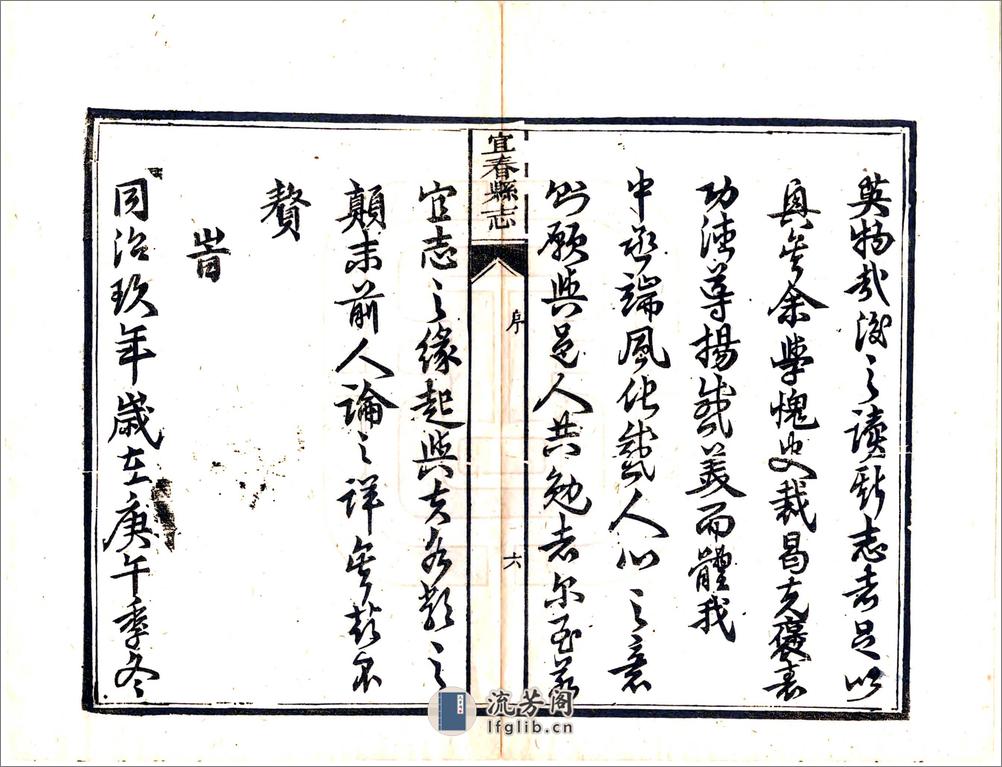 英物哉後之讀斯志者足以
興矣余學愧史裁曷克褒表
功德導揚盛美而體我
中丞端風化人心之意
則願與邑人共勉者爾至若
宜春縣志
序
六
宜志之緣起與夫各類之
顛末前人論之詳矣故不
贅
旹
同治玖年歲在庚午季冬
流芳阁
lfglib.cn